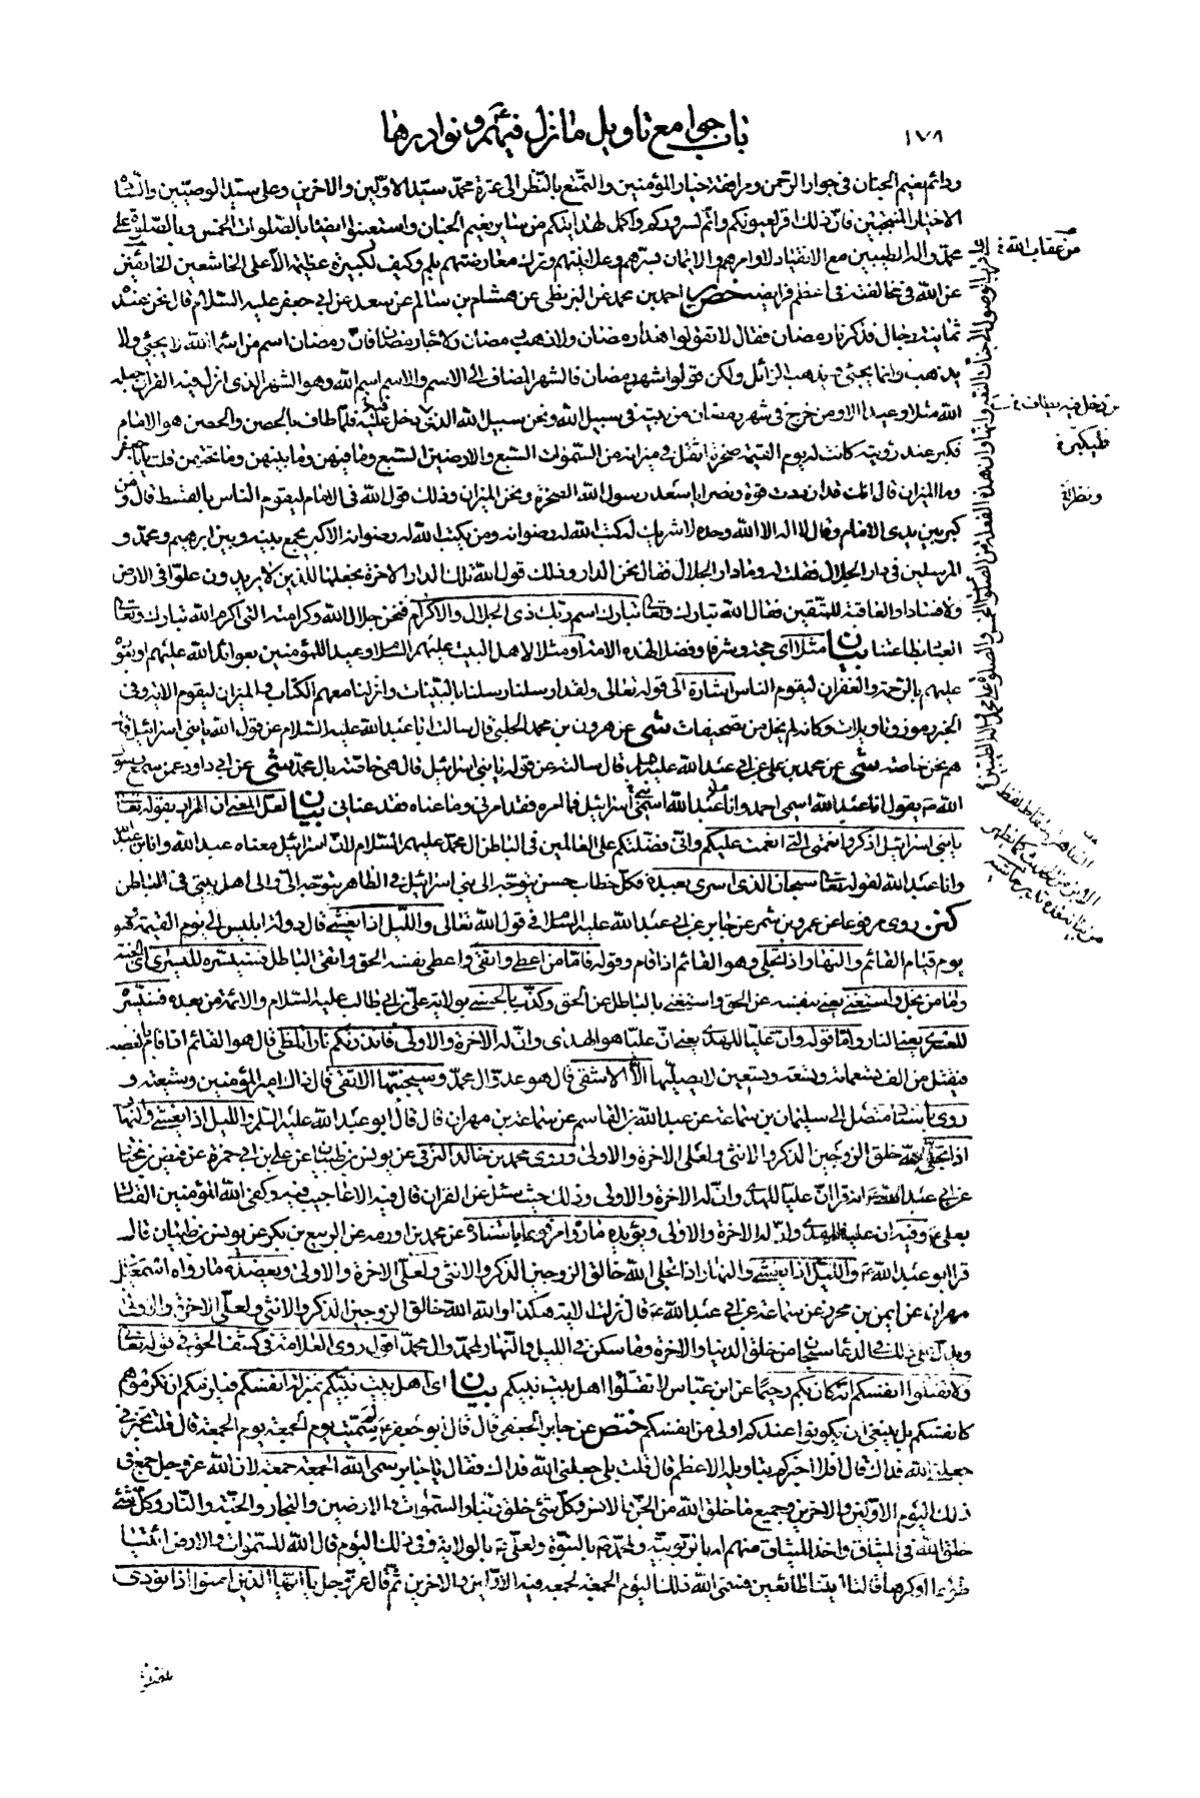 ١٧٨
باب جوامع تاويل ما نزل فيهم و نوادرها
ودائم نعيم الجنان في جوار الرحمن ومرافقة خيار المؤمنين والتمتع بالنظر الى عترة محمد سيد الاولين والاخرين وعلى سيد الوصيين والسادة
الاخيار المنتجبين فان ذلك اقر لعيونكم واتم لسروركم واكمل لهدايتكم من ساير نعيم الجنان واستعينوا ايضا بالصلوات الخمس وبالصلوة على
محمد واله الطيبين مع الانقياد لاوامرهم والايمان بسرهم وعلانيتهم وترك معارضتهم بلم وكيف لكبيرة عظيمة الا على الخاشعين الخائفين
عن الله في مخالفته في اعظم فرايضه خص ير احمد بن محمد عن البزنطي عن هشام بن سالم عن سعد عن ابي جعفر عليه السلام قال كنا عنده
ثمانية رجال فذكرنا رمضان فقال لا تقولوا هذا رمضان ولا ذهب رمضان ولا جاء رمضان فان رمضان اسم من اسماء الله لا يجئ ولا
يذهب وانما يجئ ويذهب الزائل ولكن قولوا شهر رمضان فالشهر المضاف الى الاسم والاسم اسم الله وهو الشهر الذي انزل فيه القران جعله
الله مثلا وعيدا الا ومن خرج في شهر رمضان من بيته في سبيل الله ونحن سبيل الله الذي من دخل عليه فيه فلما طاف بالحصن والحصن هو الامام
فكبر عند رؤيته كانت له يوم القيمة صخرة اثقل في ميزانه من السموات السبع والارضين السبع وما فيهن وما بينهن وما تحتهن قلت يا با جعفر
وما الميزان قال انك قد ازددت قوة ونصرا يا سعد رسول الله الصخرة ونحن الميزان وذلك قول الله في الامام ليقوم الناس بالقسط قال ومن
كبر بين يدي الامام وقال لا اله الا الله وحده لا شريك له كتب الله له رضوانه ومن يكتب الله له رضوانه الاكبر يجمع بينه وبين ابرهيم ومحمد و
المرسلين في دار الجلال فقلت له وما دار الجلال فقال نحن الدار وذلك قول الله تلك الدار الاخرة نجعلها للذين لا يريدون علوا في الارض
ولا فسادا والعاقبة للمتقين فقال الله تبارك وتعالى تبارك اسم ربك ذي الجلال والاكرام فنحن جلال الله وكرامته التي اكرم الله تبارك وتعالى
العباد بطاعتنا بيان مثلا اي حجة وشرفا وفضلا لهذه الامة او مثلا لاهل البيت عليهم السلام وعيد للمؤمنين بعوائد الله عليهم او يقو
عليهم بالرحمة والغفران ليقوم الناس اشارة الى قوله تعالى ولقد ارسلنا رسلنا بالبينات وانزلنا معهم الكتاب والميزان ليقوم الاية وفي
الخبر رموز وتاويلات وكانه لم يخل من تصحيفات شي عن هرون بن محمد الحلبي قال سالت ابا عبد الله عليه السلام عن قول الله يا بني اسرائيل قال
هم نحن خاصة شي عن محمد بن علي عن ابي عبد الله عليه السلام قال سالته عن قوله يا بني اسرائيل قال هي خاصة بال محمد شي عن ابي داود عمن سمع رسول
الله ص يقول انا عبد الله اسمي احمد وانا عبد الله اسمي اسرائيل فما امره فقد امرني وما عناه فقد عناني بيان لعل المعنى ان المراد بقوله تعالى
يا بني اسرائيل اذكروا نعمتي التي انعمت عليكم واني فضلتكم على العالمين في الباطن ال محمد عليهم السلام لان اسرائيل معناه عبد الله وانا ابن عبد
وانا عبد الله لقوله تعالى سبحان الذي اسرى بعبده فكل خطاب حسن يتوجه الى بني اسرائيل في الظاهر يتوجه الي والى اهل بيتي في الباطن
كنز روى مرفوعا عن عمرو بن شمر عن جابر عن ابي عبد الله عليه السلام في قول الله تعالى والليل اذا يغشى قال دولة ابليس الى يوم القيمة وهو
يوم قيام القائم والنهار اذا تجلى وهو القائم اذا قام وقوله فاما من اعطى واتقى واعطى نفسه الحق واتقى الباطل فسنيسره لليسرى اي الجنة
واما من بخل واستغنى يعني بنفسه عن الحق واستغنى بالباطل عن الحق وكذب بالحسنى بولاية علي بن ابي طالب عليه السلام والائمة من بعده فسنيسره
للعسرى يعني النار واما قوله وان علينا للهدى يعني ان عليا هو الهدى وان له الاخرة والاولى فانذرتكم نارا تلظى قال هو القائم اذا قام بالغضب
فيقتل من الف تسعمائة وتسعة وتسعين لا يصليها الا الاشقى قال هو عدو ال محمد وسيجنبها الاتقى قال ذاك امير المؤمنين وشيعته و
روى باسناد متصل الى سليمان بن سماعة عن عبد الله بن القاسم عن سماعة بن مهران قال قال ابو عبد الله عليه السلم والليل اذا يغشى والنهار
اذا تجلى الله خلق الزوجين الذكر والانثى ولعلي الاخرة والاولى وروى محمد بن خالد البرقي عن يونس بن ظبيان عن علي بن ابي حمزة عن فيض بن مختار
عن ابي عبد الله ع انه قرا ان عليا للهدى وان له الاخرة والاولى وذلك حيث سئل عن القران قال فيه الاعاجيب فيه وكفى الله المؤمنين القتال
بعلي ع وفيه ان عليا للهدى وان له الاخرة والاولى ويؤيده ما رواه مرفوعا باسناده عن محمد بن اورمه عن الربيع بن بكر عن يونس بن ظبيان قال
قرا ابو عبد الله ع والليل اذا يغشى والنهار اذا تجلى الله خالق الزوجين الذكر والانثى ولعلي الاخرة والاولى ويعضده ما رواه اسمعيل بن
مهران عن ايمن بن محرز عن سماعة عن ابي عبد الله ع قال نزلت الاية هكذا والله الله خالق الزوجين الذكر والانثى ولعلي الاخرة والاولى
ويدل على ذلك في الدعاء سبحان من خلق الدنيا والاخرة وما سكن في الليل والنهار لمحمد وال محمد اقول روى العلامة في كشف الحق في قوله تعالى
ولا تقتلوا انفسكم ان الله كان بكم رحيما عن ابن عباس لا تقتلوا اهل بيت نبيكم بيان اي اهل بيت نبيكم بمنزلة انفسكم فيلزمكم ان تكرموهم
كانفسكم بل ينبغي ان يكونوا عندكم اولى من انفسكم ختص عن جابر الجعفي قال قال ابو جعفر ع لم سميت يوم الجمعة يوم الجمعة قال قلت تخبرني
جعلني الله فداك قال افلا اخبركم بتاويله الاعظم قال قلت بلى جعلني الله فداك فقال يا جابر سمى الله الجمعة جمعة لان الله عز وجل جمع في
ذلك اليوم الاولين والاخرين وجميع ما خلق الله من الجن والانس وكل شئ خلق ربنا والسموات والارضين والبحار والجنة والنار وكل شئ
خلق الله في الميثاق واخذ الميثاق منهم له بالربوبية ولمحمد ص بالنبوة ولعلي ع بالولاية وفي ذلك اليوم قال الله للسموات والارض ائتيا
طوعا او كرها قالتا اتينا طائعين فسمى الله ذلك اليوم الجمعة لجمعه فيه الاولين والاخرين ثم قال عز وجل يا ايها الذين امنوا اذا نودي
من عقاب الله
من دخل فيه يطاف
فليكبره
ونظرا